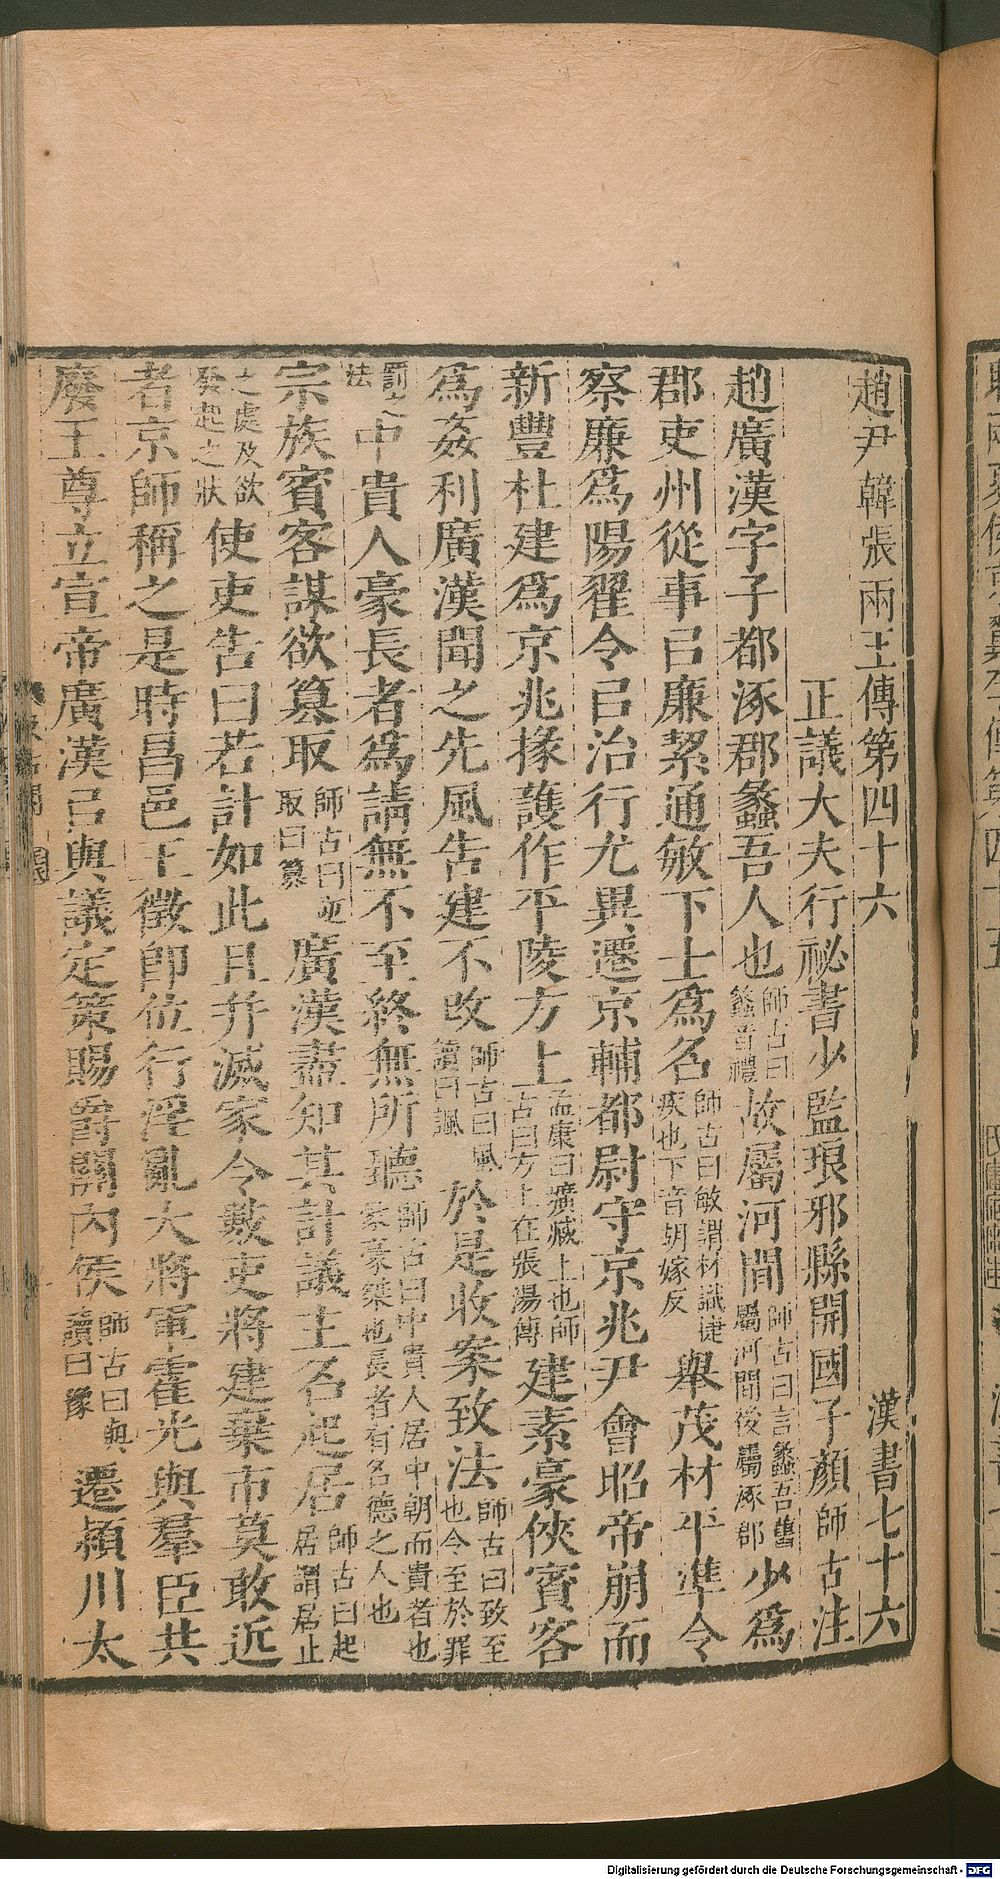 趙尹韓張兩王傳第四十六 漢書七十六
正議大夫行祕書少監琅邪縣開國子顏師古注
趙廣漢字子都涿郡蠡吾人也師古曰蠡音禮故屬河間師古曰言蠡吾舊屬河間後屬涿郡少爲
郡吏州從事㠯廉絜通敏下士爲名師古曰敏謂材識捷疾也下音胡嫁反舉茂材平準令
察廉爲陽翟令㠯治行尤異遷京輔都尉守京兆尹會昭帝崩而
新豐杜建爲京兆掾護作平陵方上孟康曰壙臧上也師古曰方上在張湯傳建素豪俠賓客
爲姦利廣漢聞之先風告建不改師古曰風讀曰諷於是收案致法師古曰致至也令至於罪
罰之法中貴人豪長者爲請無不至終無所聽師古曰中貴人居中朝而貴者也豪豪桀也長者有名德之人也
宗族賓客謀欲篡取師古曰逆取曰篡廣漢盡知其計議主名起居師古曰起居謂居止
之處及欲發起之狀使吏告曰若計如此且并滅家令數吏將建棄市莫敢近
者京師稱之是時昌邑王徵卽位行淫亂大將軍霍光與羣臣共
廢王尊立宣帝廣漢㠯與議定策賜爵關內侯師古曰與讀曰豫遷潁川太
Digitalisierung gefördert durch die Deutsche Forschungsgemeinschaft - DFG